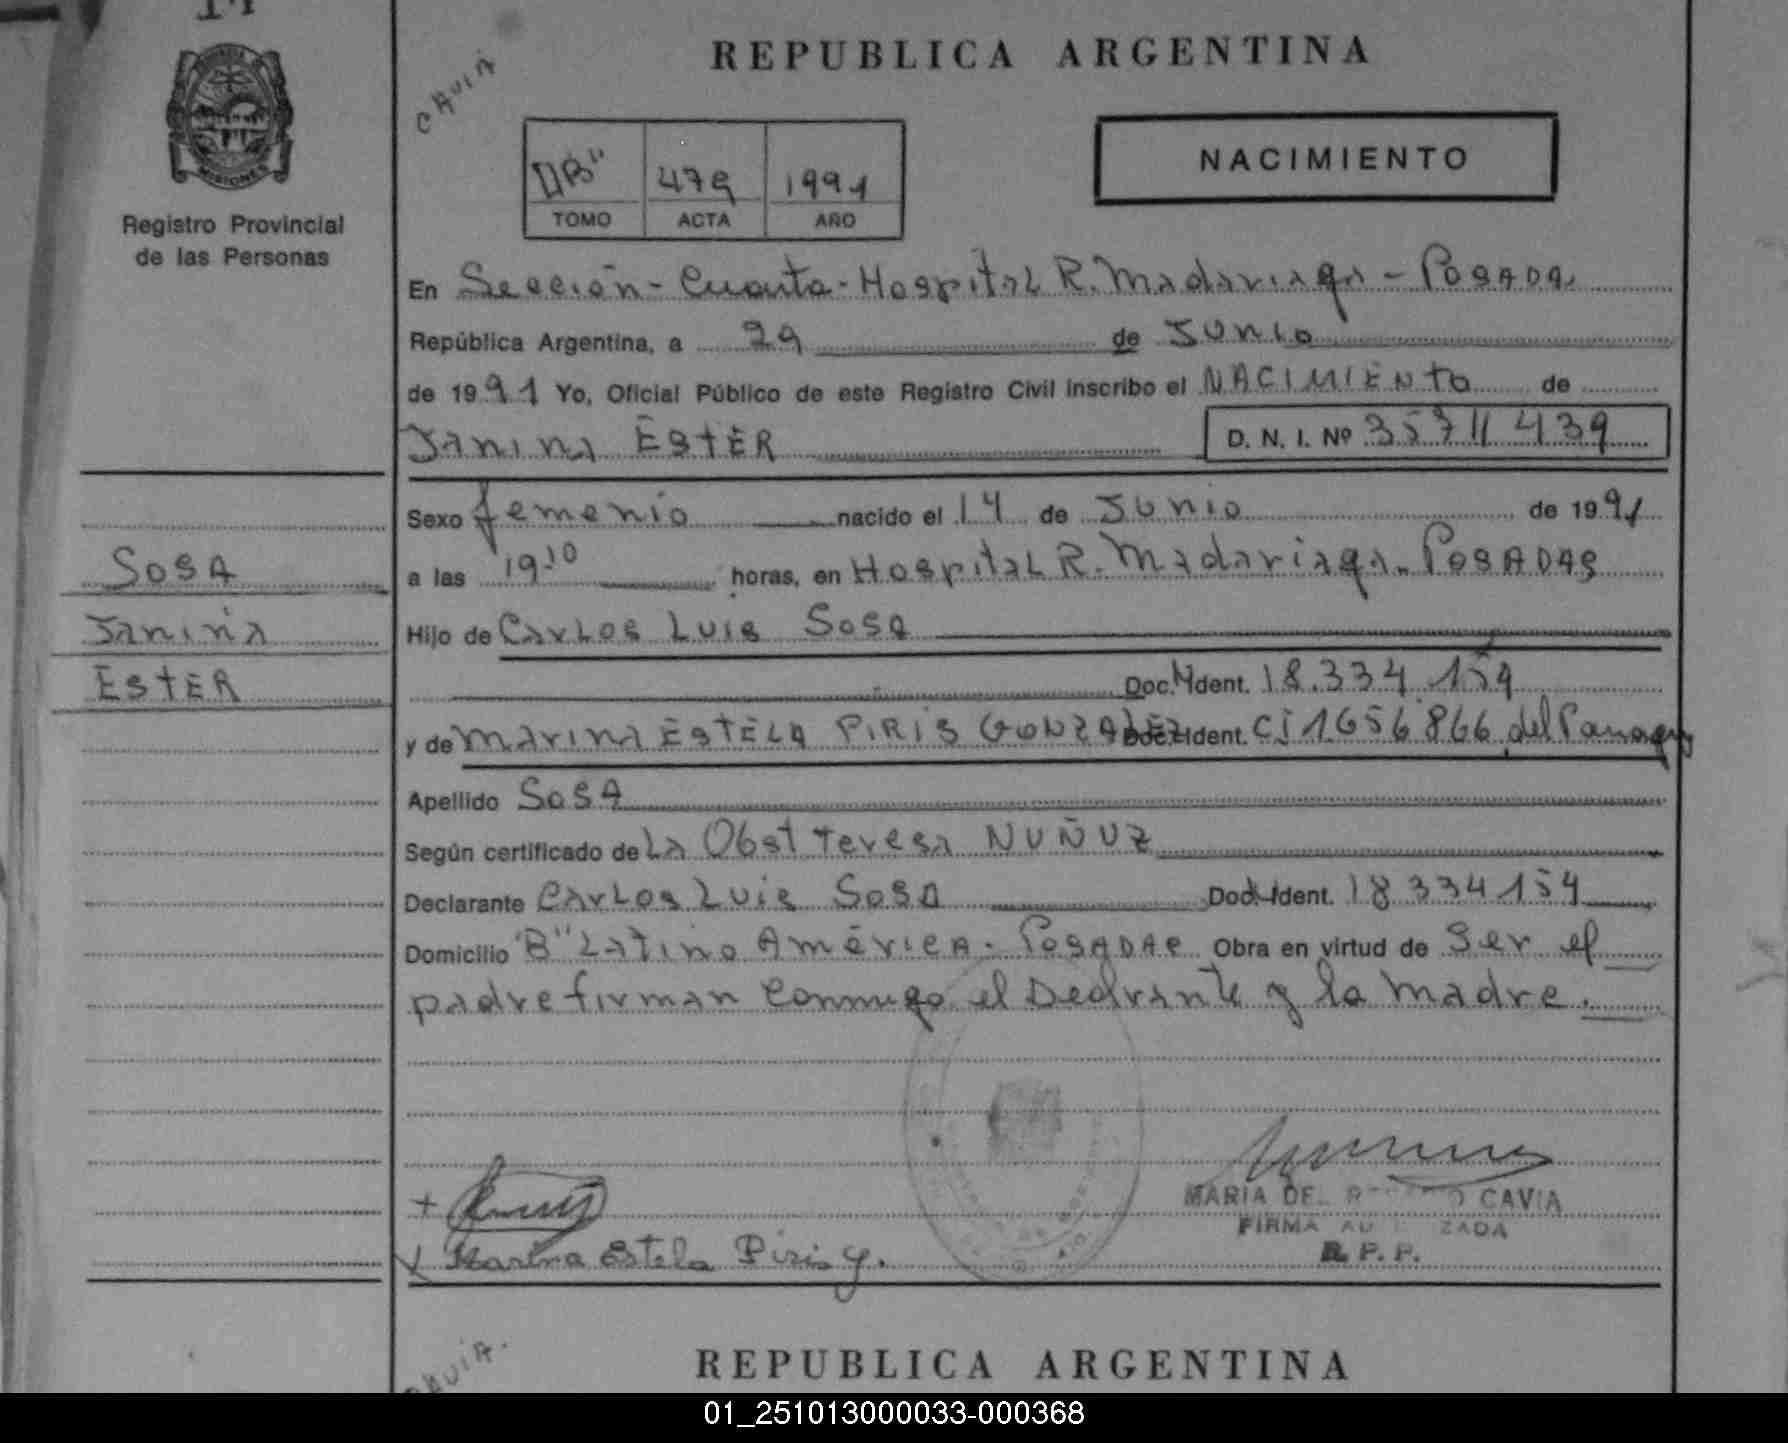 CAVIA
REPUBLICA ARGENTINA
MISIONES
Registro Provincial
de las Personas
"B" 479 1991
TOMO ACTA AÑO
NACIMIENTO
En Sección - Cuarta - Hospital R. Madariaga - POSADAS
República Argentina, a 29 de JUNIO
de 1991 Yo, Oficial Público de este Registro Civil inscribo el NACIMIENTO de
JANINA ESTER D. N. I. Nº 35711439
Sexo femenio nacido el 14 de JUNIO de 1991
a las 19-10 horas, en Hospital R. Madariaga - POSADAS
Hijo de Carlos Luis Sosa
Doc. Ident. 18.334.154
y de Marina ESTELA PIRIS GONZALEZ Doc. Ident. CI 1656866 del Paraguay
Apellido SOSA
Según certificado de La Obst teresa NUÑUZ
Declarante Carlos Luis SOSA Doc. Ident. 18334154
Domicilio "B" Latino América - POSADAS Obra en virtud de ser el
padre firman conmigo el Declrante y la madre.
SOSA
Janina
ESTER
Marina Estela Piris G.
MARIA DEL CAVIA
FIRMA AUTORIZADA
R. P. P.
CAVIA.
REPUBLICA ARGENTINA
01_251013000033-000368